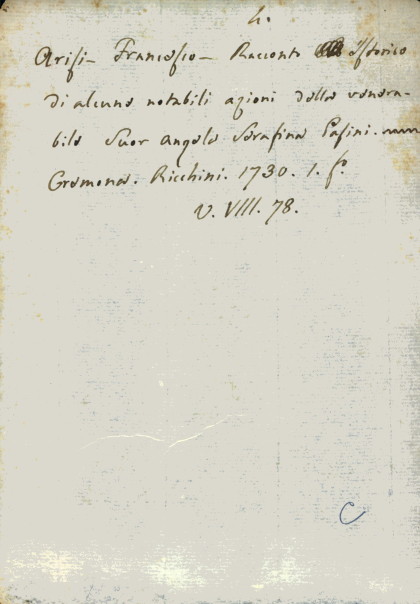 h.
Arisi - Francesco - Racconto istorico
di alcune notabili azioni della venera-
bile Suor Angela Serafina Pasini.
Cremona. Ricchini. 1730. 1. f.°
V. VIII. 78.
C